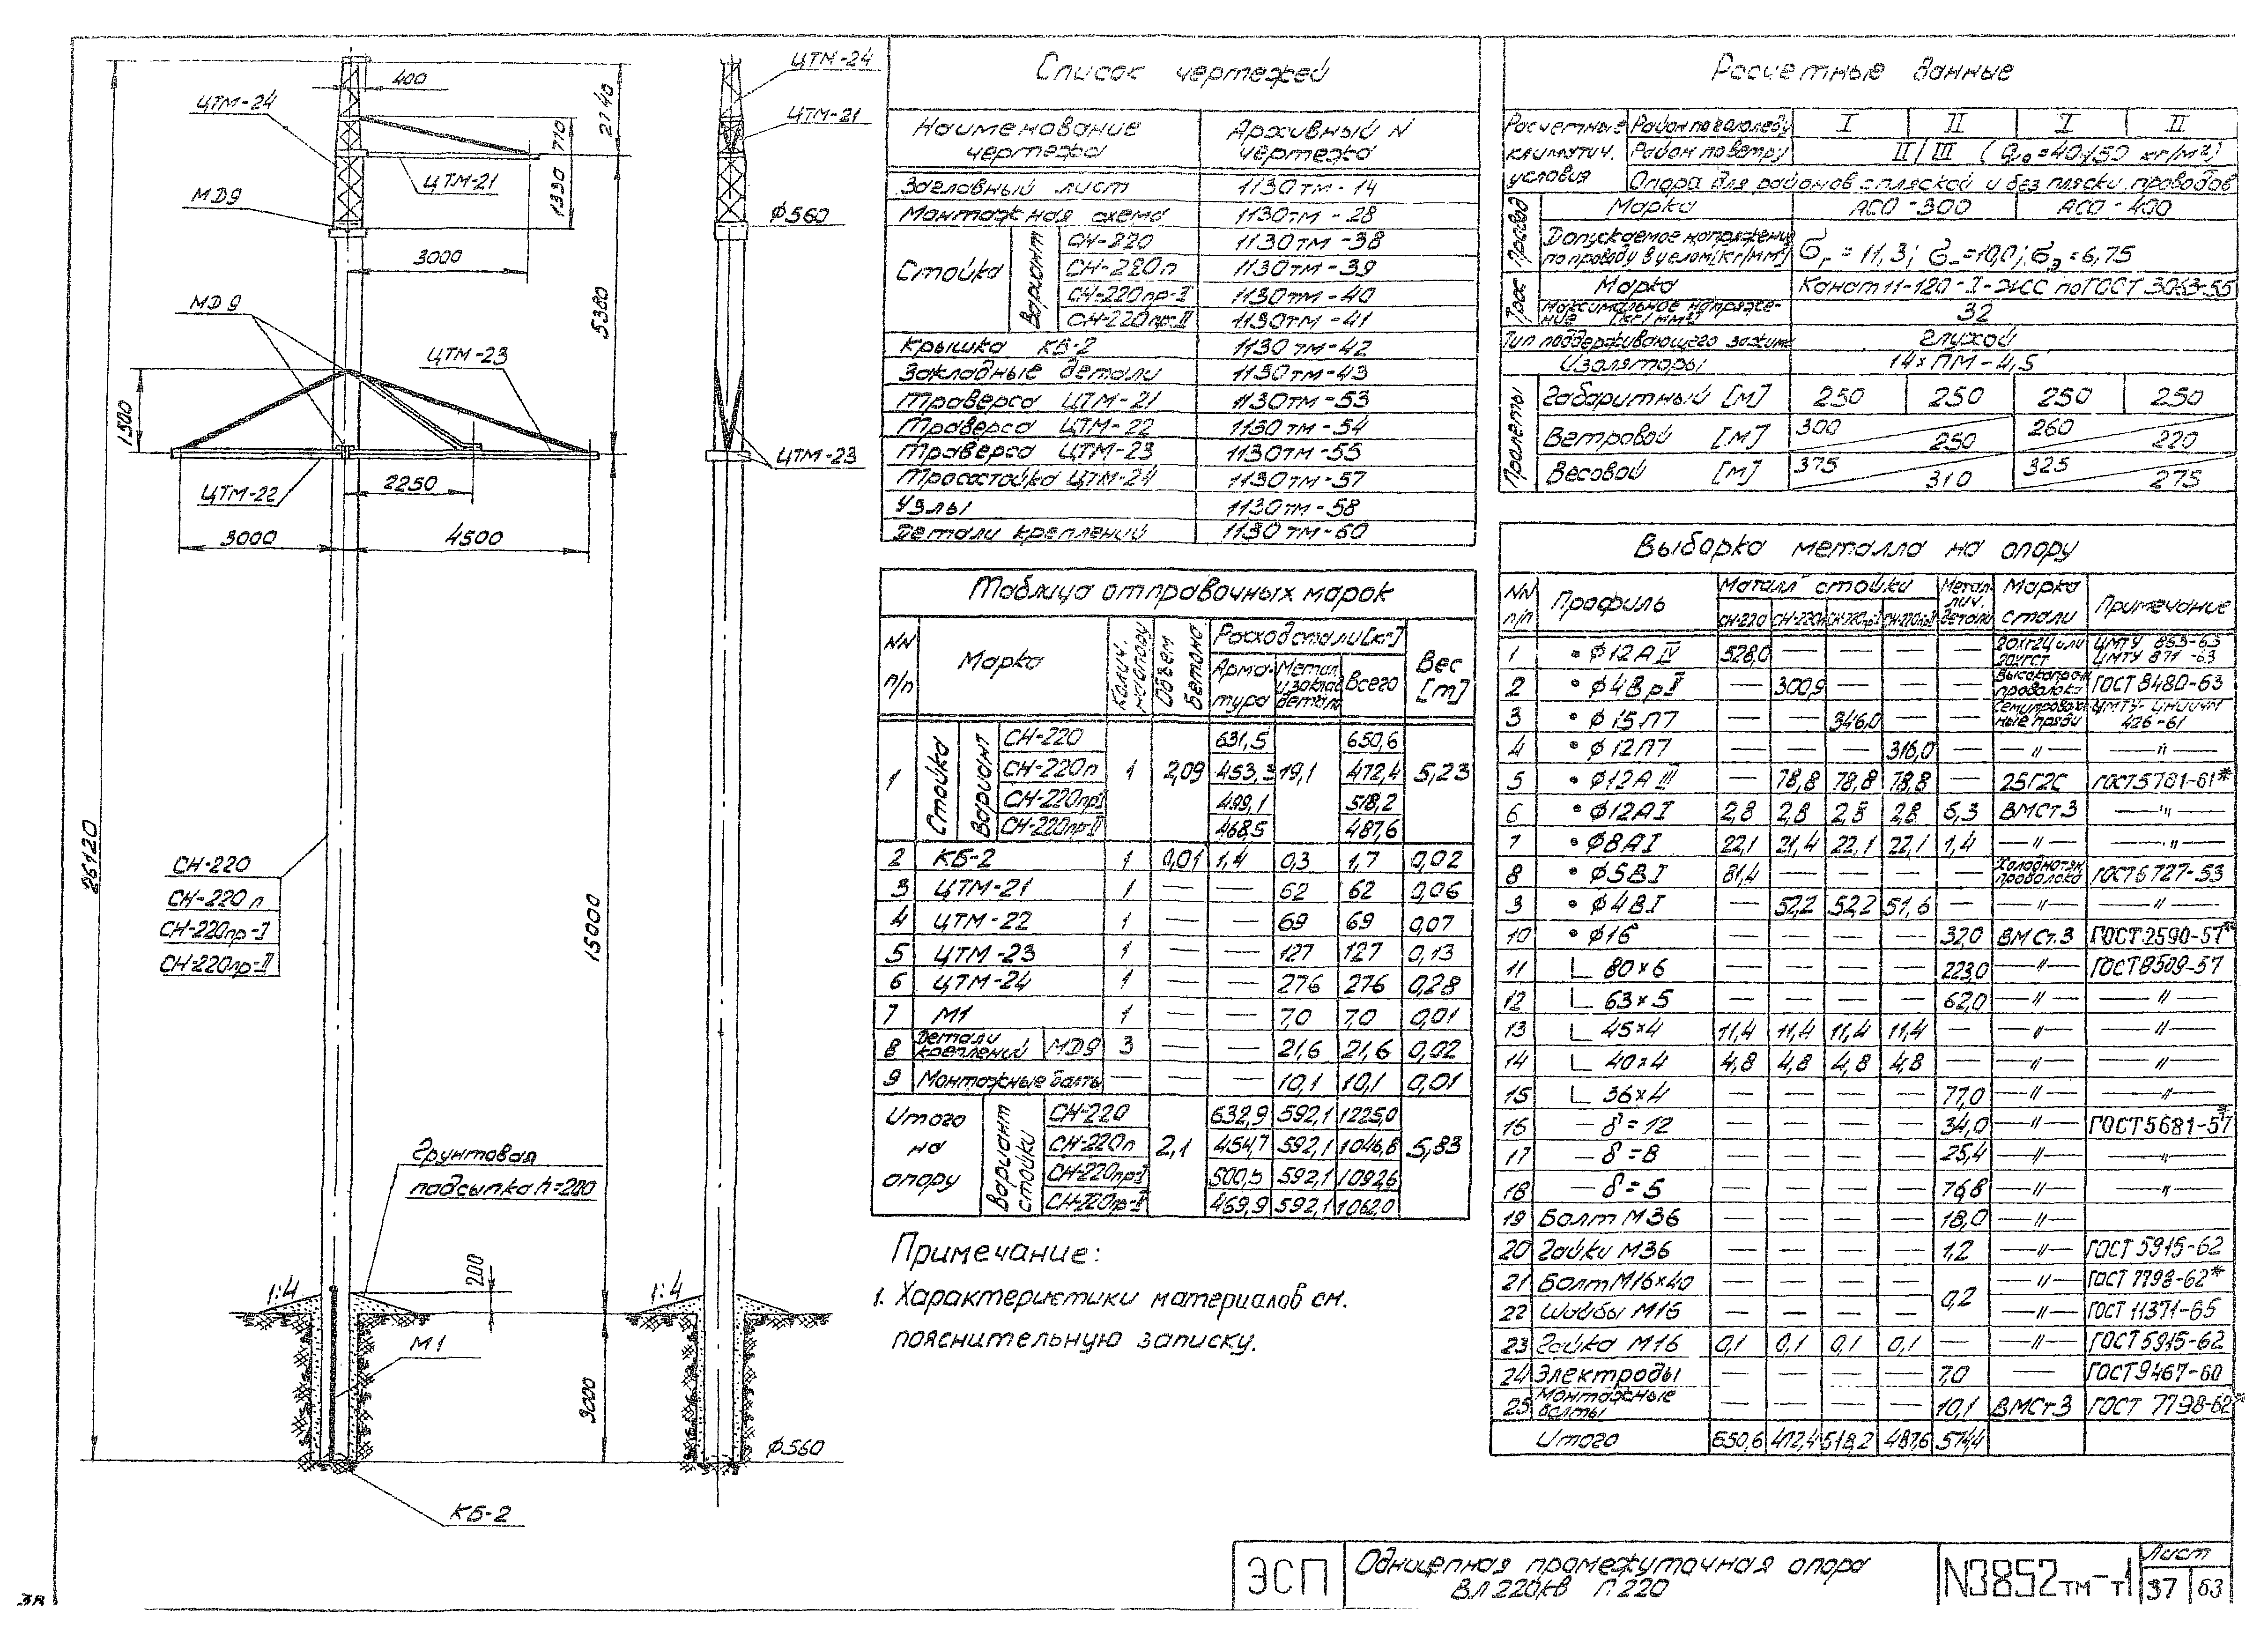 ЦТМ-24
400
ЦТМ-21
МД9
3000
2740
770
1330
5380
МД9
ЦТМ-23
1500
ЦТМ-22
2250
3000
4500
26120
15000
СН-220
СН-220п
СН-220пр-I
СН-220пр-II
Грунтовая
подсыпка h=200
200
1:4
М1
3000
КБ-2
ЦТМ-24
ЦТМ-21
Ф560
ЦТМ-23
1:4
Ф560
Список чертежей
Наименование чертежа | Архивный N чертежа
Заглавный лист 1130тм-14
Монтажная схема 1130тм-28
Стойка Вариант СН-220 1130тм-38
СН-220п 1130тм-39
СН-220пр-I 1130тм-40
СН-220пр-II 1130тм-41
Крышка КБ-2 1130тм-42
Закладные детали 1130тм-43
Траверса ЦТМ-21 1130тм-53
Траверса ЦТМ-22 1130тм-54
Траверса ЦТМ-23 1130тм-55
Тросостойка ЦТМ-24 1130тм-57
Узлы 1130тм-58
Детали креплений 1130тм-60
Таблица отправочных марок
NN п/п | Марка | Колич. на опору | Объем бетона | Расход стали [кг] | Вес [т]
Арматура | Метал. и заклад. детали | Всего
1 Стойка Вариант СН-220 1 2,09 631,5 19,1 650,6 5,23
СН-220п 453,3 472,4
СН-220прI 499,1 518,2
СН-220пр-II 468,5 487,6
2 КБ-2 1 0,01 1,4 0,3 1,7 0,02
3 ЦТМ-21 1 — — 62 62 0,06
4 ЦТМ-22 1 — — 69 69 0,07
5 ЦТМ-23 1 — — 127 127 0,13
6 ЦТМ-24 1 — — 276 276 0,28
7 М1 1 — — 7,0 7,0 0,01
8 Детали креплений МД9 3 — — 21,6 21,6 0,02
9 Монтажные болты — — — 10,1 10,1 0,01
Итого на опору Вариант стойки СН-220 2,1 632,9 592,1 1225,0 5,83
СН-220п 454,7 592,1 1046,8
СН-220прI 500,5 592,1 1092,6
СН-220пр-II 469,9 592,1 1062,0
Примечание:
1. Характеристики материалов см.
пояснительную записку.
Расчетные данные
Расчетные климатич. условия
Район по гололеду I II I II
Район по ветру II/III (q₁₀=40/50 кг/м²)
Опора для районов с пляской и без пляски проводов
Провод Марка АСО-300 АСО-400
Допускаемое напряжение по проводу в целом [кг/мм²] σг = 11,3; σ- = 10,0; σэ = 6,75
Трос Марка Канат 11-120-I-ЖСС по ГОСТ 3063-55
Максимальное напряжение [кг/мм²] 32
Тип поддерживающего зажима глухой
Изоляторы 14×ПМ-4,5
Пролеты Габаритный [м] 250 250 250 250
Ветровой [м] 300 250 260 220
Весовой [м] 375 310 325 275
Выборка металла на опору
NN п/п | Профиль | Металл стойки | Металлич. детали | Марка стали | Примечание
СН-220 | СН-220п | СН-220пр-I | СН-220пр-II
1 • Ф12АIV 528,0 — — — — 20ХГ2Ц или ЦМТУ 863-63 ЦМТУ 871-63
2 • Ф4ВрII — 300,9 — — — Высокопроч. проволока ГОСТ 8480-63
3 • Ф15П7 — — 346,0 — — Семипроволочные пряди ЦМТУ-ЦНИИЧМ 426-61
4 • Ф12П7 — — — 316,0 — —〃— —〃—
5 • Ф12АIII — 78,8 78,8 78,8 — 25Г2С ГОСТ 5781-61*
6 • Ф12АI 2,8 2,8 2,8 2,8 6,3 ВМСт3 —〃—
7 • Ф8АI 22,1 21,4 22,1 22,1 1,4 —〃— —〃—
8 • Ф5ВI 81,4 — — — — Холоднотян. проволока ГОСТ 6727-53
9 • Ф4ВI — 52,2 52,2 51,6 — —〃— —〃—
10 • Ф16 — — — — 32,0 ВМСт.3 ГОСТ 2590-57*
11 L 80×6 — — — — 223,0 —〃— ГОСТ 8509-57
12 L 63×5 — — — — 62,0 —〃— —〃—
13 L 45×4 11,4 11,4 11,4 11,4 — —〃— —〃—
14 L 40×4 4,8 4,8 4,8 4,8 — —〃— —〃—
15 L 36×4 — — — — 77,0 —〃— —〃—
16 — δ=12 — — — — 34,0 —〃— ГОСТ 5681-57*
17 — δ=8 — — — — 25,4 —〃— —〃—
18 — δ=5 — — — — 76,8 —〃— —〃—
19 Болт М36 — — — — 18,0 —〃—
20 Гайки М36 — — — — 1,2 —〃— ГОСТ 5915-62
21 Болт М16×40 — — — — 0,2 —〃— ГОСТ 7798-62*
22 Шайбы М16 — — — — —〃— ГОСТ 11371-65
23 Гайка М16 0,1 0,1 0,1 0,1 — —〃— ГОСТ 5915-62
24 Электроды — — — — 7,0 — ГОСТ 9467-60
25 Монтажные болты — — — — 10,1 ВМСт3 ГОСТ 7798-62*
Итого 650,6 472,4 518,2 487,6 574,4
ЭСП
Одноцепная промежуточная опора
ВЛ 220кв П220
N3852тм-т1
Лист
37 63
38